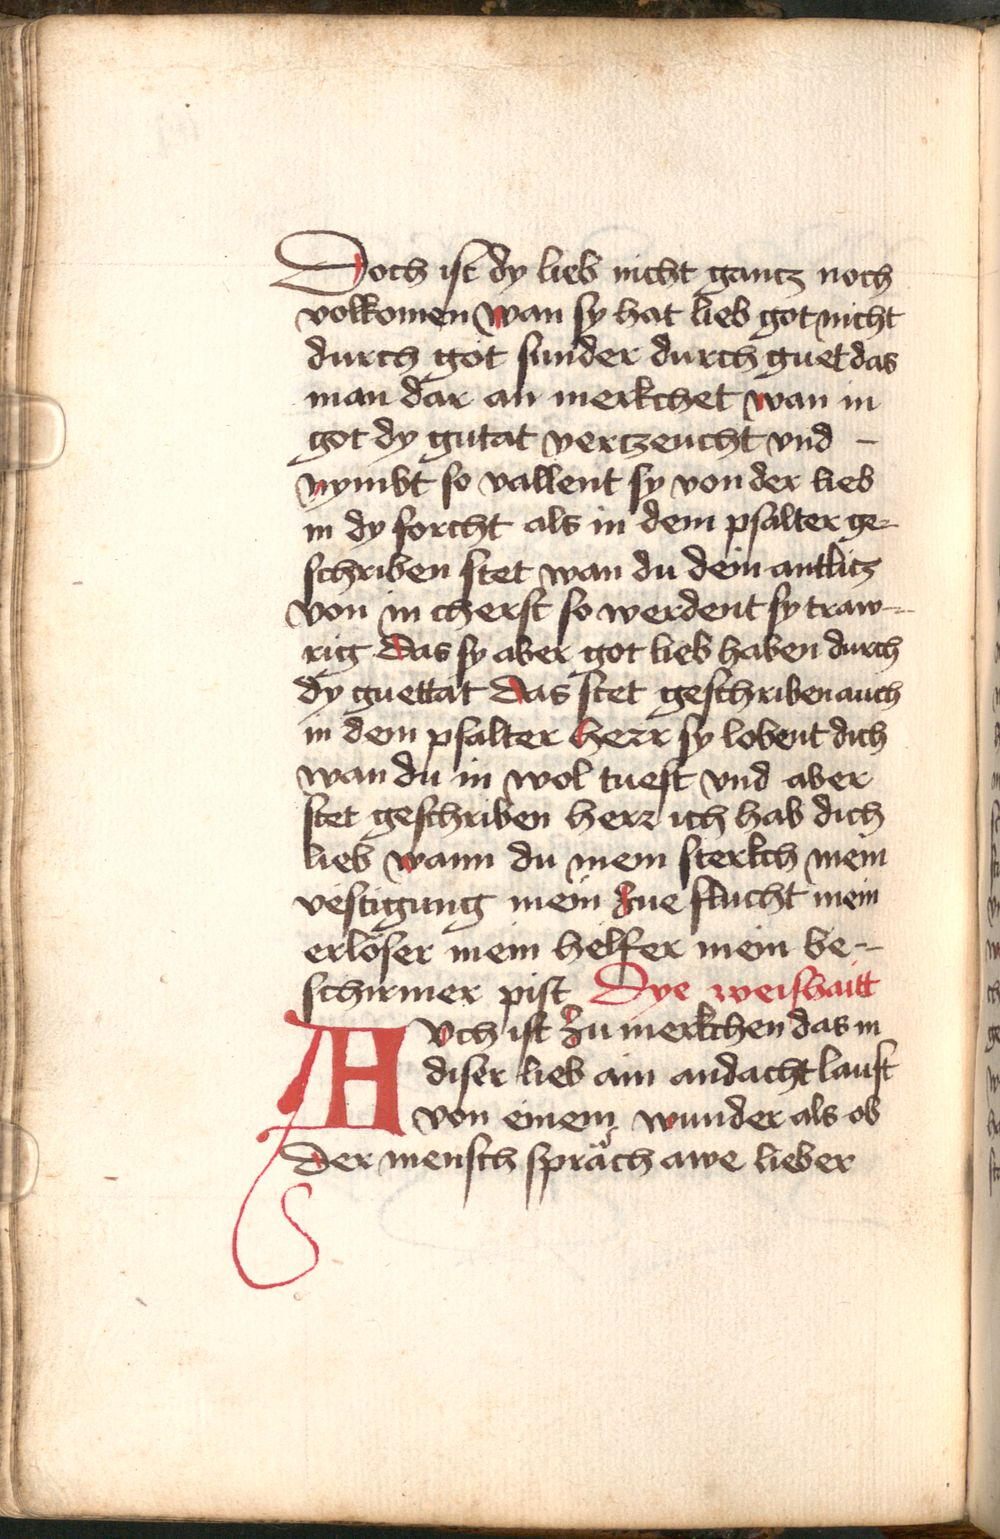 Doch ist dy lieb nicht gancz noch
volkomen wan sy hat lieb got nicht
durch got sunder durch guet das
man dar an merkchet wan in
got dy gutat vertzeucht vnd –
nymbt so vallent sy von der lieb
in dy forcht als in dem psalter ge-
schriben stet wan du dein antlicz
von in cherst so werdent sy traw-
rig das sy aber got lieb haben durch
dy guettat das stet geschriben auch
in dem psalter herr sy lobent dich
wan du in wol tuest vnd aber
stet geschriben herr ich hab dich
lieb wann du mein sterkch mein
vestigung mein zue flucht mein
erlöser mein helfer mein be-
schirmer pist Dye weishaitt
AVch ist zu merkchen das in
diser lieb ain andacht lauft
von einem wunder als ob
der mensch sprach awe lieber